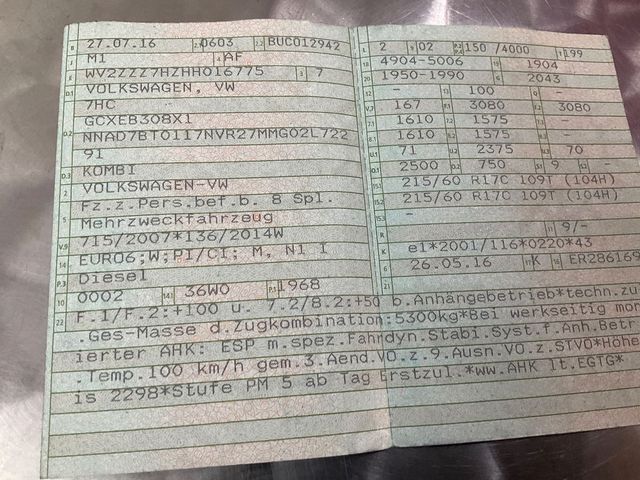 B 27.07.16 2.1 0603 2.2 BUC012942
J M1 4 AF
E WV2ZZZ7HZHH016775 3 7
D.1 VOLKSWAGEN, VW
7HC
D.2 GCXEB308X1
NNAD7BT0117NVR27MMG02L722
91
D.3 KOMBI
2 VOLKSWAGEN-VW
5 Fz.z.Pers.bef.b. 8 Spl.
Mehrzweckfahrzeug
V.9 715/2007*136/2014W
14 EURO6;W;PI/CI; M, N1 I
P.3 Diesel
10 0002 14.1 36W0 P.1 1968
L 2 9 02 P.2 P.4 150 /4000 T 199
18 4904-5006 19 1904
20 1950-1990 G 2043
12 - 13 100 Q -
V.7 167 F.1 3080 F.2 3080
7.1 1610 7.2 1575 7.3 -
8.1 1610 8.2 1575 8.3 -
U.1 71 U.2 2375 U.3 70
O.1 2500 O.2 750 S.1 9 S.2 -
15.1 215/60 R17C 109T (104H)
15.2 215/60 R17C 109T (104H)
15.3 -
R 11 9/-
K e1*2001/116*0220*43
6 26.05.16 17 K 16
21
22 F.1/F.2:+100 u. 7.2/8.2:+50 b.Anhängebetrieb*techn.zu
.Ges-Masse d.Zugkombination:5300kg*Bei werkseitig mon
ierter AHK: ESP m.spez.Fahrdyn.Stabi.Syst.f.Anh.Betr
.Temp.100 km/h gem.3.Aend.VO.z.9.Ausn.VO.z.STVO*Höhe
is 2298*Stufe PM 5 ab Tag Erstzul.*ww.AHK lt.EGTG*